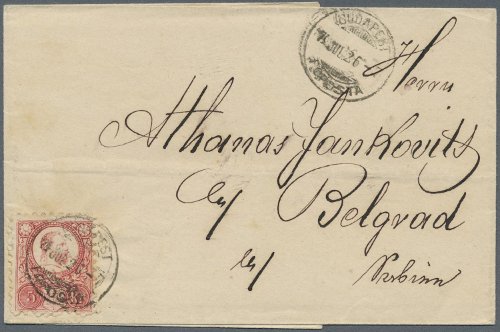 BUDAPEST
FŐPOSTA
Herrn
Athanas Jankovits
Belgrad
Serbien
5